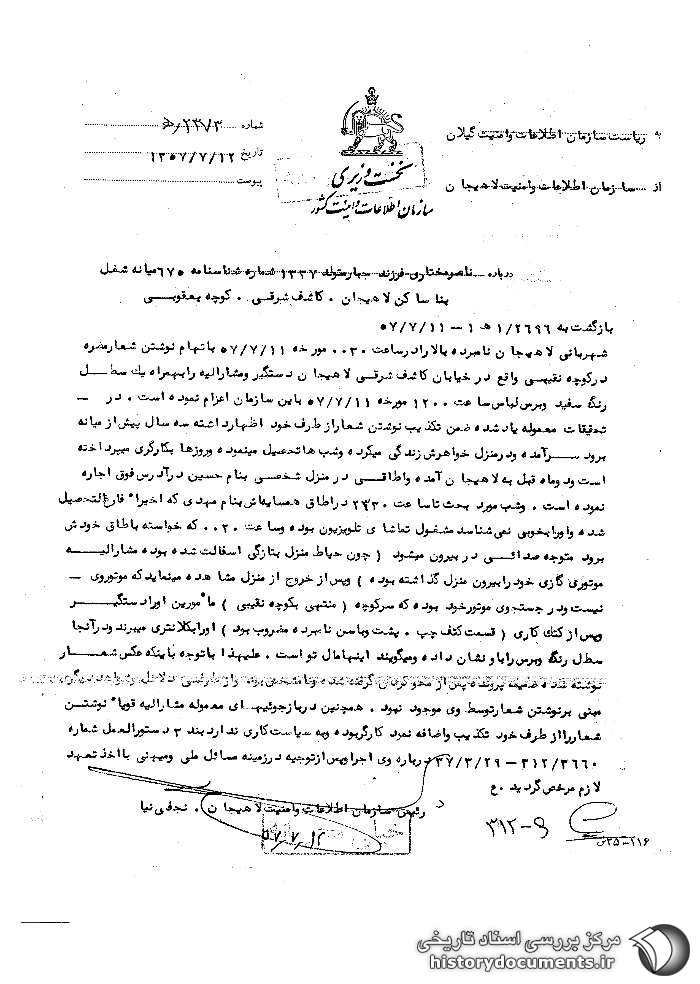 به ریاست سازمان اطلاعات وامنیت گیلان
از سازمان اطلاعات وامنیت لاهیجان
شماره ۲۲۷۳/ه
تاریخ ۱۳۵۷/۷/۱۲
پیوست
نخست وزیری
سازمان اطلاعات و امنیت کشور
درباره ناصر مختاری فرزند جبار متولد ۱۳۳۷ شماره شناسنامه ۶۷۵ میانه شغل
بنا ساکن لاهیجان . کاشف شرقی . کوچه یعقوبی
بازگشت به ۱/۲۶۹۶ ه ۱ – ۵۷/۷/۱۱
شهربانی لاهیجان نامبرده بالا رادر ساعت ۰۰۳۰ مورخه ۵۷/۷/۱۱ باتهام نوشتن شعار مضره
درکوچه نقیبی واقع در خیابان کاشف شرقی لاهیجان دستگیر ومشارالیه رابهمراه یک سطل
رنگ سفید وبرس لباس ساعت ۱۲۰۰ مورخه ۵۷/۷/۱۱ باین سازمان اعزام نموده است . در –
تحقیقات معموله یاد شده ضمن تکذیب نوشتن شعار از طرف خود اظهار داشته سه سال پیش از میانه
برود سر آمده ودرمنزل خواهرش زندگی میکرده وشب ها تحصیل مینموده وروزها بکارگری میپرداخته
است ودوماه قبل به لاهیجان آمده واطاقی در منزل شخصی بنام حسین درآدرس فوق اجاره
نموده است . وشب مورد بحث تاساعت ۲۳۳۰ دراطاق همسایه اش بنام مهدی که اخیرا" فارغ التحصیل
شده واورا بخوبی نمی شناسد مشغول تماشای تلویزیون بوده وساعت ۰۰۲۰ که خواسته باطاق خودش
برود متوجه صدائی در بیرون میشود ( چون حیاط منزل بتازگی اسفالت شده بوده مشارالیه
موتوری گازی خود رابیرون منزل گذاشته بوده ) وپس از خروج از منزل مشاهده مینماید که موتوروی –
نیست ودر جستجوی موتور خود بوده که سرکوچه ( منتهی بکوچه نقیبی ) مأمورین اورا دستگیر
وپس از کتک کاری ( قسمت کتف چپ . پشت وباسن نامبرده مضروب بود ) اورابکلانتری میبرند ودرآنجا
سطل رنگ وبرس رابا ونشان داده ومیگویند اینها مال تو است . علیهذا باتوجه باینکه عکس شعار
نوشته شده ضمیمه پرونده پس از محو کردن گرفته شده ونا مشخص بود واز طرفی دلائل وشواهد دیگری
مبنی برنوشتن شعارتوسط وی موجود نبود . همچنین دربازجوئیهای معموله مشارالیه قویا" نوشتن
شعاررا از طرف خود تکذیب واضافه نمود کارگربوده وبه سیاست کاری ندارد بند ۳ دستورالعمل شماره
۳۱۲/۳۶۶۰ – ۳۷/۳/۲۹ درباره وی اجرا وپس ازتوجیه درزمینه مسائل ملی ومیهنی با اخذ تعهد
لازم مرخص گردید . ع
رئیس سازمان اطلاعات وامنیت لاهیجان . نجفی نیا
۵۷/۷/۱۲
۳۱۲-و
۲۵-۲۱۶
مرکز بررسی اسناد تاریخی
historydocuments.ir